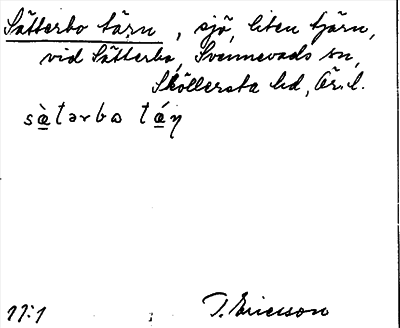 Sätterbo tärn, sjö, liten tjärn,
vid Sätterbo, Svennevads sn,
Sköllersta hd, Ör. l.
sàtərbɷ táɳ
11:1
T. Ericsson